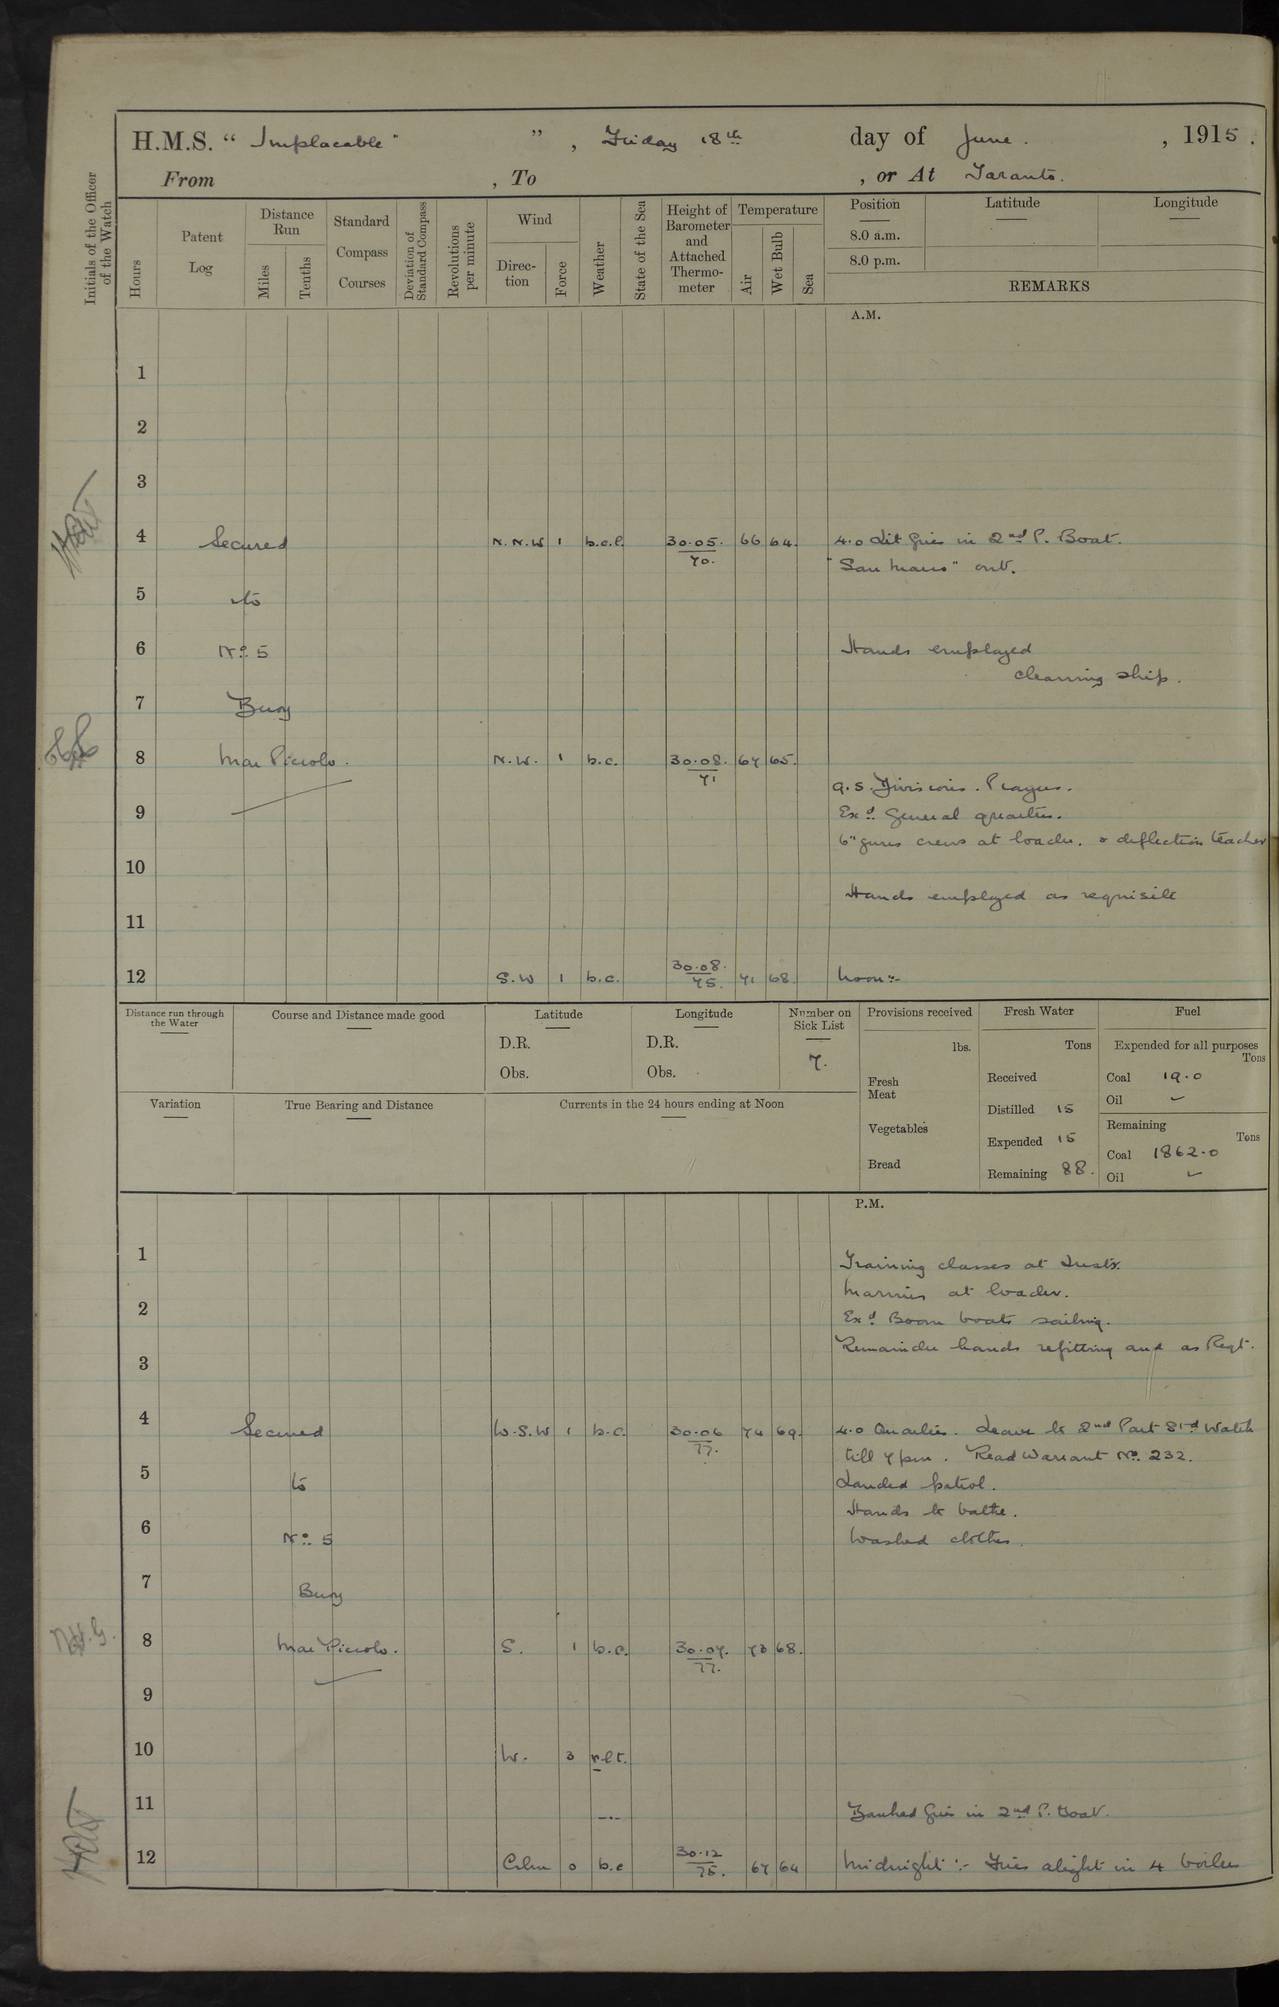 H.M.S. "Implacable" " , Friday 18th day of June. , 1915.
From , To , or At Taranto.
Initials of the Officer of the Watch
Hours
Patent Log
Distance Run
Miles
Tenths
Standard Compass Courses
Deviation of Standard Compass
Revolutions per minute
Wind
Direc-tion
Force
Weather
State of the Sea
Height of Barometer and Attached Thermo-meter
Temperature
Air
Wet Bulb
Sea
Position
8.0 a.m.
8.0 p.m.
Latitude
Longitude
REMARKS
A.M.
1
2
3
4 Secured N.N.W 1 b.c.l. 30.05. 70. 66 64. 4.0 Lit fires in 2nd P. Boat.
"San Marco" out.
5 to
6 No. 5 Hands employed
cleaning ship.
7 Buoy
8 Mar Piccolo. N.W. 1 b.c. 30.08. 71 67 65.
9.5. Divisions. Prayers.
9 Exd. General quarters.
6" guns crews at loader. & deflection teacher
10
Hands employed as requisite
11
12 S.W 1 b.c. 30.08. 75. 71 68 Noon:-
Distance run through the Water
Course and Distance made good
Latitude
D.R.
Obs.
Longitude
D.R.
Obs.
Number on Sick List
7.
Provisions received
lbs.
Fresh Meat
Vegetables
Bread
Fresh Water
Tons
Received
Distilled 15
Expended 15
Remaining 88.
Fuel
Expended for all purposes
Tons
Coal 19.0
Oil
Remaining
Tons
Coal 1862.0
Oil
Variation
True Bearing and Distance
Currents in the 24 hours ending at Noon
P.M.
1 Training classes at Insts.
Marines at loader.
2 Exd. Boom boats sailing.
3 Remainder hands refitting and as Reqt.
4 Secured W.S.W 1 b.c. 30.06 77. 74 69. 4.0 Quarters. Leave to 2nd Part Stbd Watch
till 7 pm. Read Warrant No. 232.
5 to Landed patrol.
Hands to bathe.
6 No. 5 Washed clothes.
7 Buoy
8 Mar Piccolo. S. 1 b.c. 30.07. 77. 73 68.
N.H.G.
9
10 W. 3 r.l.t.
11 Banked fires in 2nd P. Boat.
12 Calm 0 b.c 30.12 75. 67 64 Midnight:- Fires alight in 4 boilers